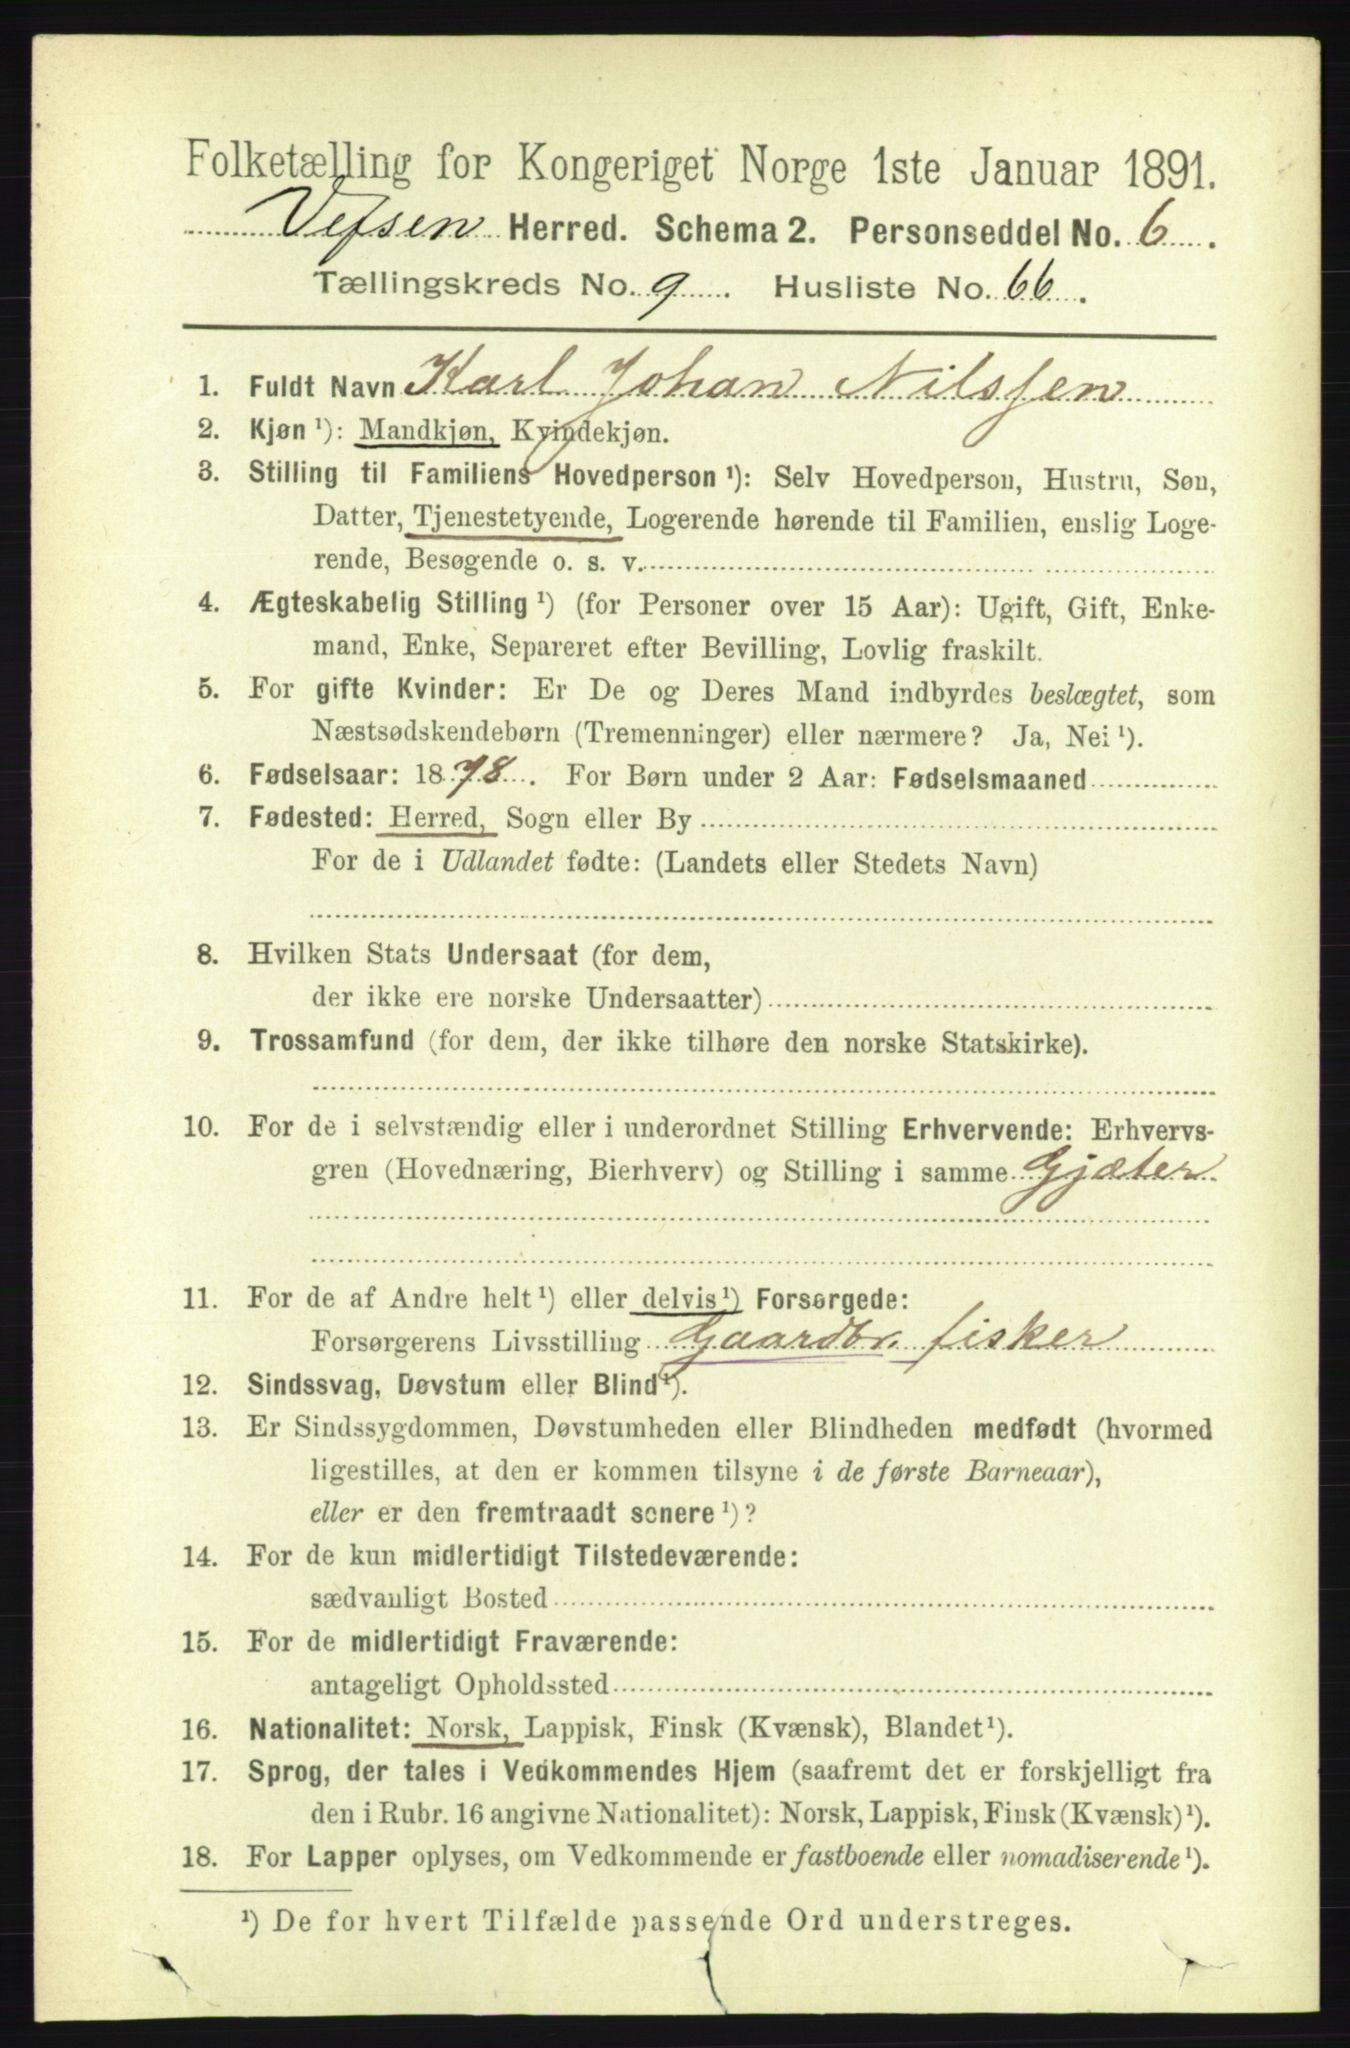 Folketælling for Kongeriget Norge 1ste Januar 1891.
Vefsen Herred. Schema 2. Personseddel No. 6.
Tællingskreds No. 9. Husliste No. 66.
1. Fuldt Navn Karl Johan Nilssen
2. Kjøn ¹): Mandkjøn, Kvindekjøn.
3. Stilling til Familiens Hovedperson ¹): Selv Hovedperson, Hustru, Søn,
Datter, Tjenestetyende, Logerende hørende til Familien, enslig Loge-
rende, Besøgende o. s. v.
4. Ægteskabelig Stilling ¹) (for Personer over 15 Aar): Ugift, Gift, Enke-
mand, Enke, Separeret efter Bevilling, Lovlig fraskilt.
5. For gifte Kvinder: Er De og Deres Mand indbyrdes beslægtet, som
Næstsødskendebørn (Tremenninger) eller nærmere? Ja, Nei ¹).
6. Fødselsaar: 1878. For Børn under 2 Aar: Fødselsmaaned
7. Fødested: Herred, Sogn eller By
For de i Udlandet fødte: (Landets eller Stedets Navn)
8. Hvilken Stats Undersaat (for dem,
der ikke ere norske Undersaatter)
9. Trossamfund (for dem, der ikke tilhøre den norske Statskirke).
10. For de i selvstændig eller i underordnet Stilling Erhvervende: Erhvervs-
gren (Hovednæring, Bierhverv) og Stilling i samme Gjæter
11. For de af Andre helt ¹) eller delvis ¹) Forsørgede:
Forsørgerens Livsstilling Gaardbr. fisker
12. Sindssvag, Døvstum eller Blind ¹).
13. Er Sindssygdommen, Døvstumheden eller Blindheden medfødt (hvormed
ligestilles, at den er kommen tilsyne i de første Barneaar),
eller er den fremtraadt senere ¹)?
14. For de kun midlertidigt Tilstedeværende:
sædvanligt Bosted
15. For de midlertidigt Fraværende:
antageligt Opholdssted
16. Nationalitet: Norsk, Lappisk, Finsk (Kvænsk), Blandet ¹).
17. Sprog, der tales i Vedkommendes Hjem (saafremt det er forskjelligt fra
den i Rubr. 16 angivne Nationalitet): Norsk, Lappisk, Finsk (Kvænsk) ¹).
18. For Lapper oplyses, om Vedkommende er fastboende eller nomadiserende ¹).
¹) De for hvert Tilfælde passende Ord understreges.